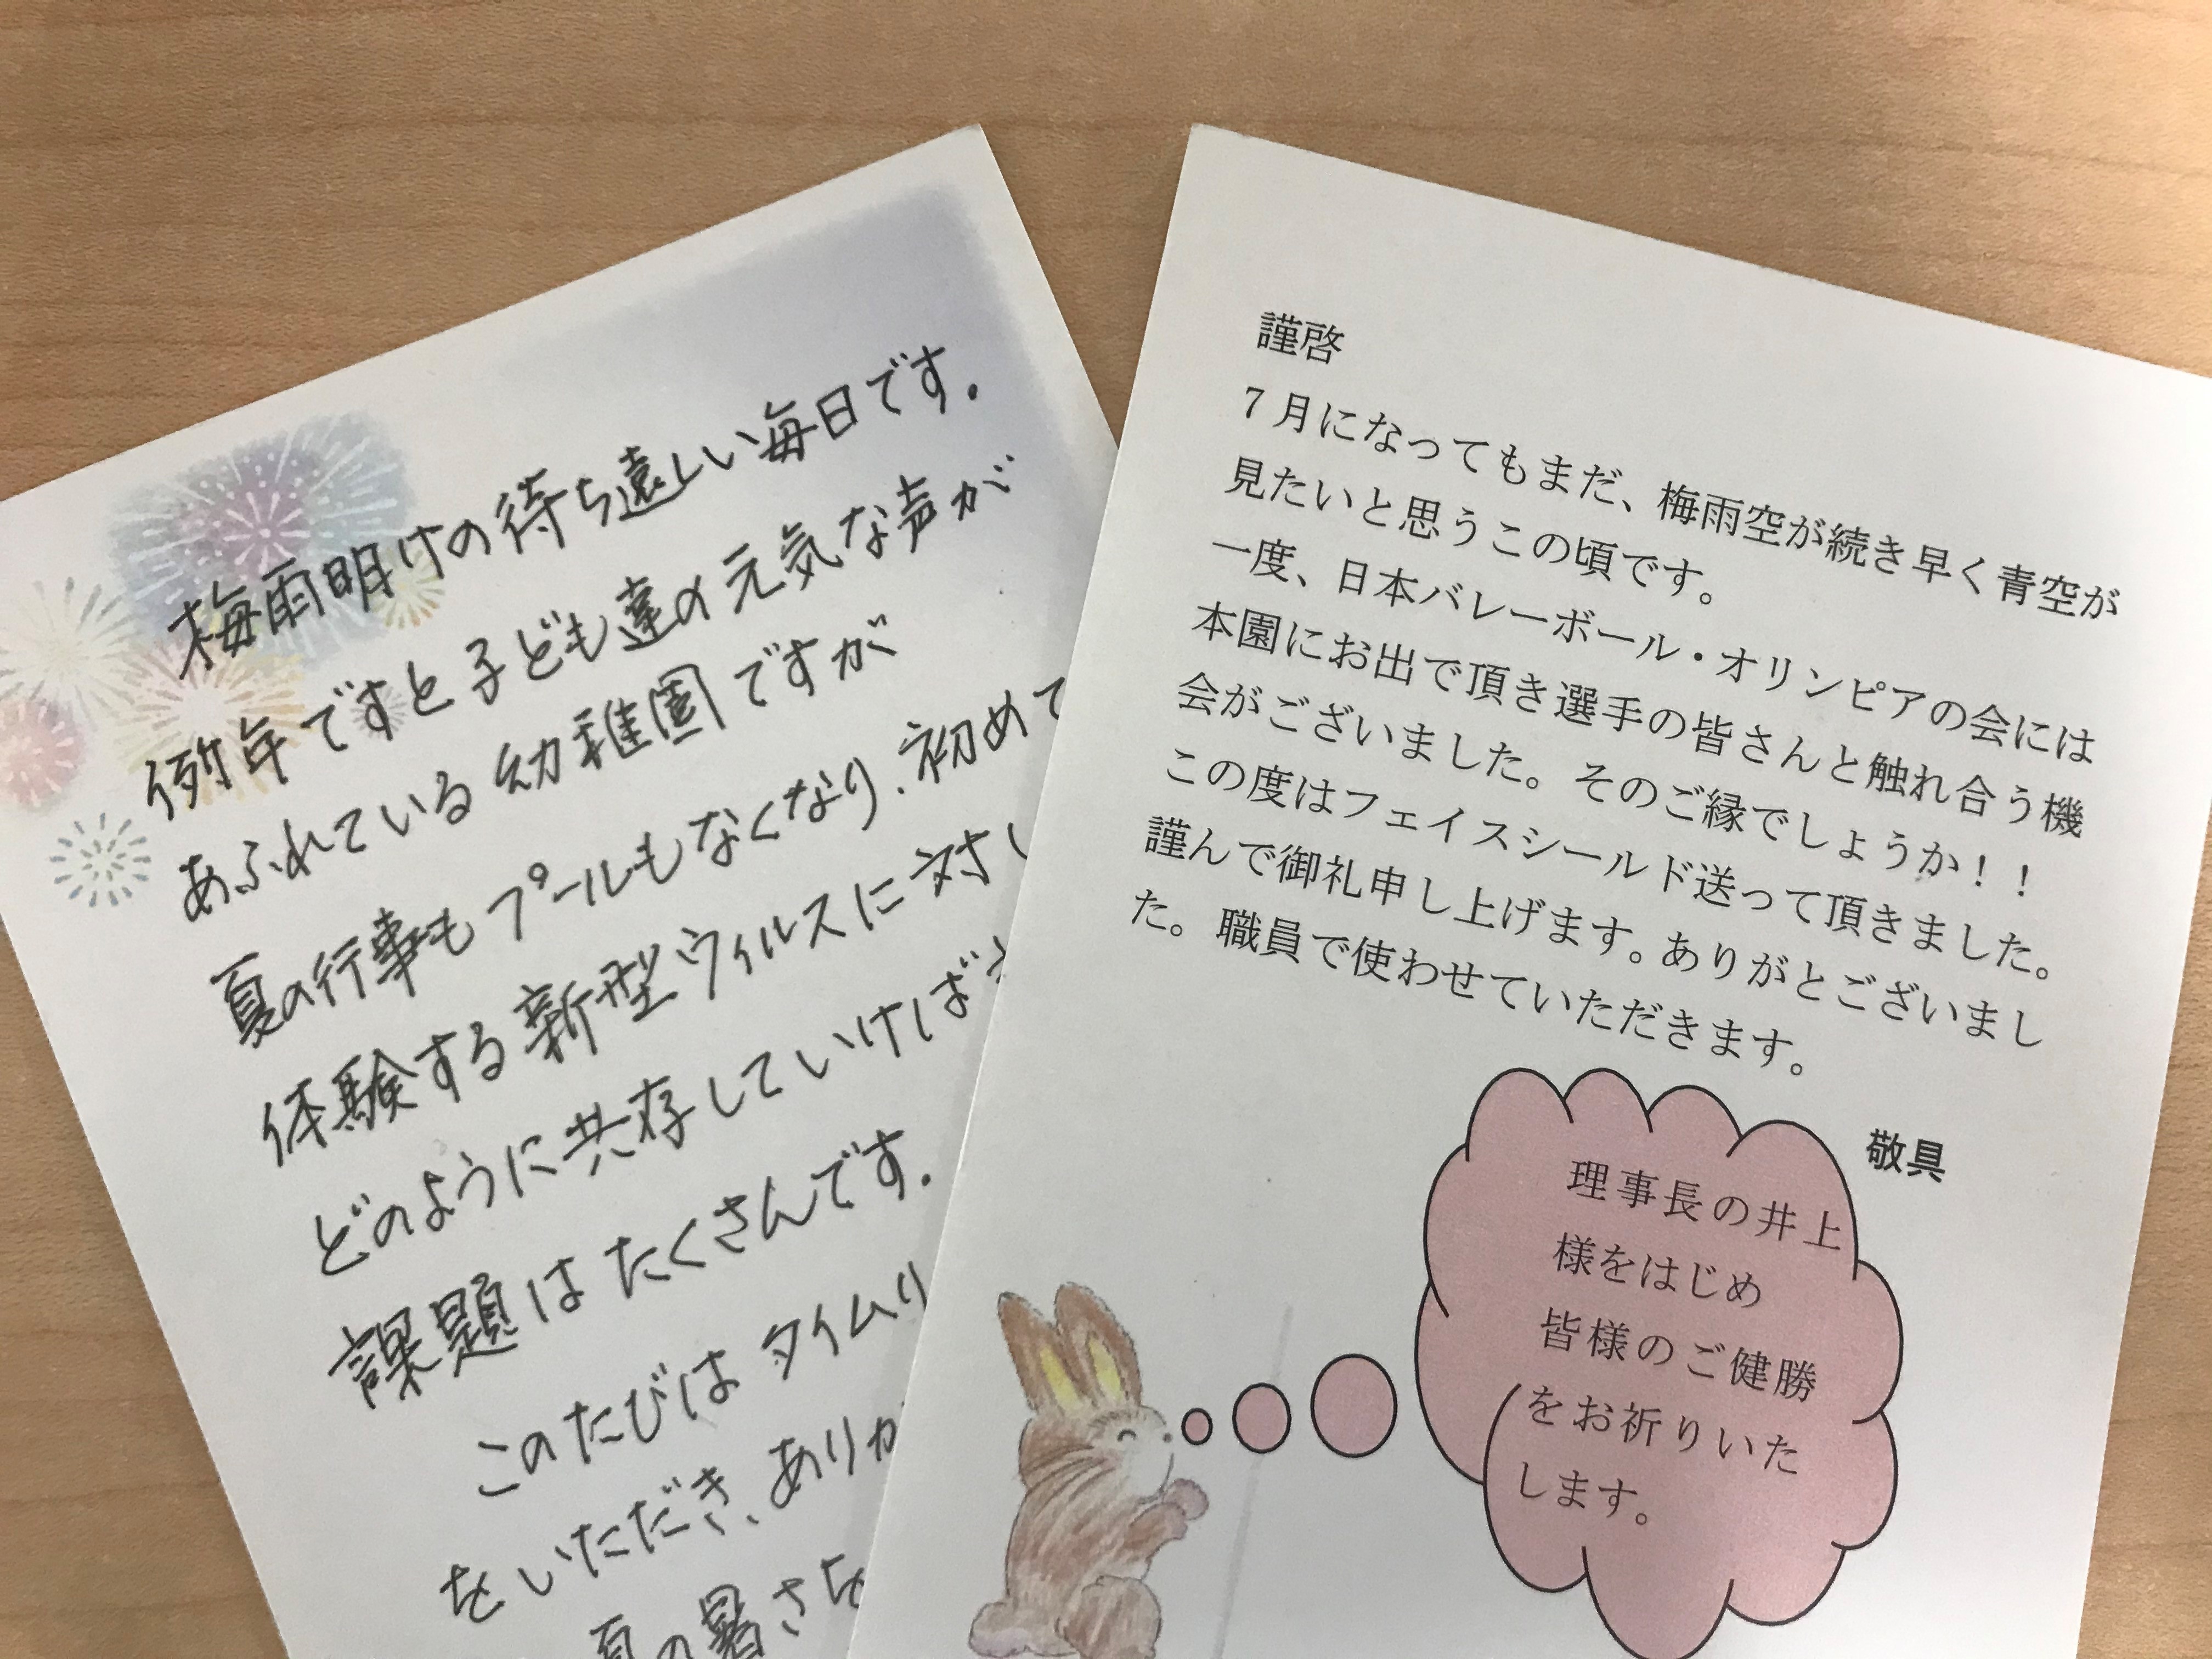 梅雨明けの待ち遠しい毎日です.
例年ですと子ども達の元気な声が
あふれている幼稚園ですが
夏の行事もプールもなくなり、初めて
体験する新型ウィルスに対し
どのように共存していけば
課題はたくさんです.
このたびは タイムリ
をいただき、ありが
夏の暑さを
謹啓
７月になってもまだ、梅雨空が続き早く青空が
見たいと思うこの頃です。
一度、日本バレーボール・オリンピアの会には
本園にお出で頂き選手の皆さんと触れ合う機
会がございました。そのご縁でしょうか！！
この度はフェイスシールド送って頂きました。
謹んで御礼申し上げます。ありがとございまし
た。職員で使わせていただきます。
敬具
理事長の井上
様をはじめ
皆様のご健勝
をお祈りいた
します。